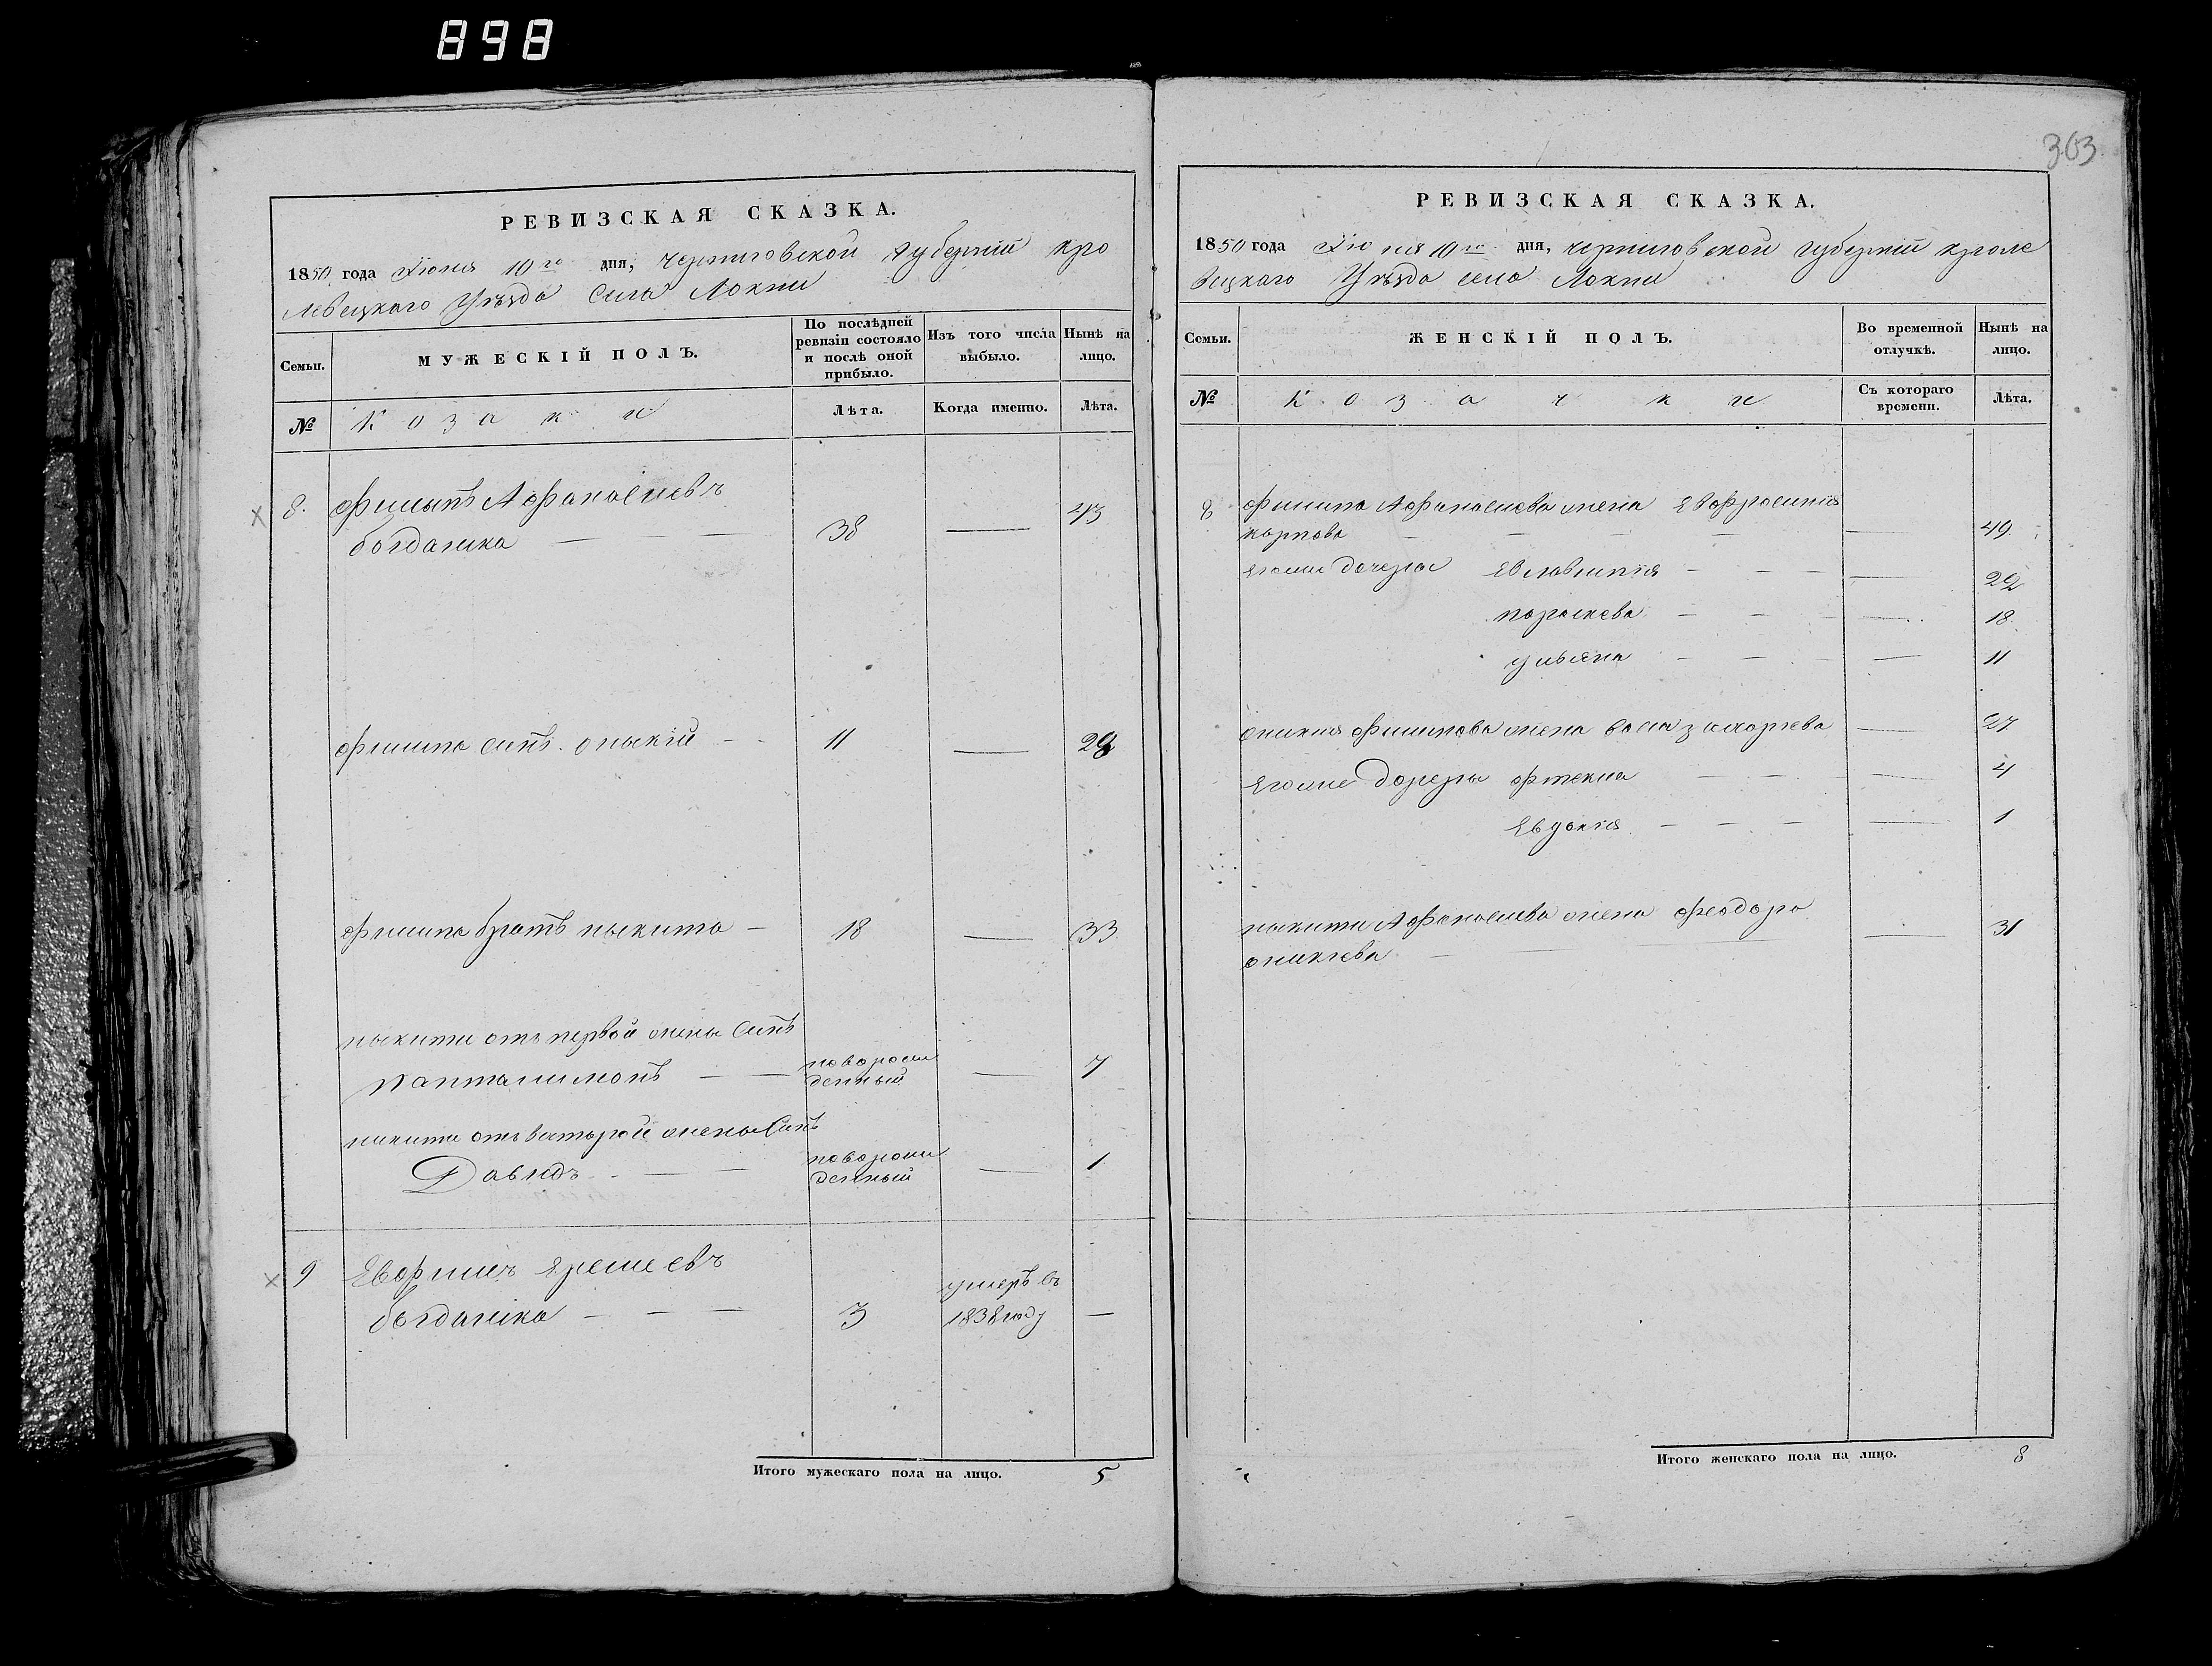 898
303.
РЕВИЗСКАЯ СКАЗКА.
1850 года Июня 10го дня, черниговской губернiи кро
левецкого Уѣзда Села Локни
Семьи.
МУЖЕСКІЙ ПОЛЪ.
По послѣдней ревизіи состояло и послѣ оной прибыло.
Изъ того числа выбыло.
Нынѣ на лицо.
№
Козаки
Лѣта.
Когда именно.
Лѣта.
8. Филыпъ Афанасиевъ
богдашка — — — 38 — 43
филипа синъ оныкiй — — 11 — 26
филипа братъ ныкита — 18 — 33
ныкити отъ первой жены Синъ
Панталимонъ — — новорож
денный — 7
никити отъ вьторой жены Синъ
Давидъ — — новорож
денный — 1
9 Евфимъ Яремеевъ
богдашка — — — 3 умеръ въ
1838 году —
Итого мужескаго пола на лицо. 5
РЕВИЗСКАЯ СКАЗКА.
1850 года Июня 10го дня, черниговской губернiи кроле
вецкого Уѣзда села Локни
Семьи.
ЖЕНСКІЙ ПОЛЪ.
Во временной отлучкѣ.
Нынѣ на лицо.
№
Козачки
Съ котораго времени.
Лѣта.
8 филипа Афанасиева жена Евфросиния
карпова — — — — — 49
егоже дочеры — — — — 22
параскева — — — — 18
ульяна — — — — 11
оникия филипова жена — 27
Егоже дочеры — — — 4
Евдокiя — — — — 1
ныкити Афанасиева жена феодора
оникѣева — — — 31
Итого женскаго пола на лицо. 8